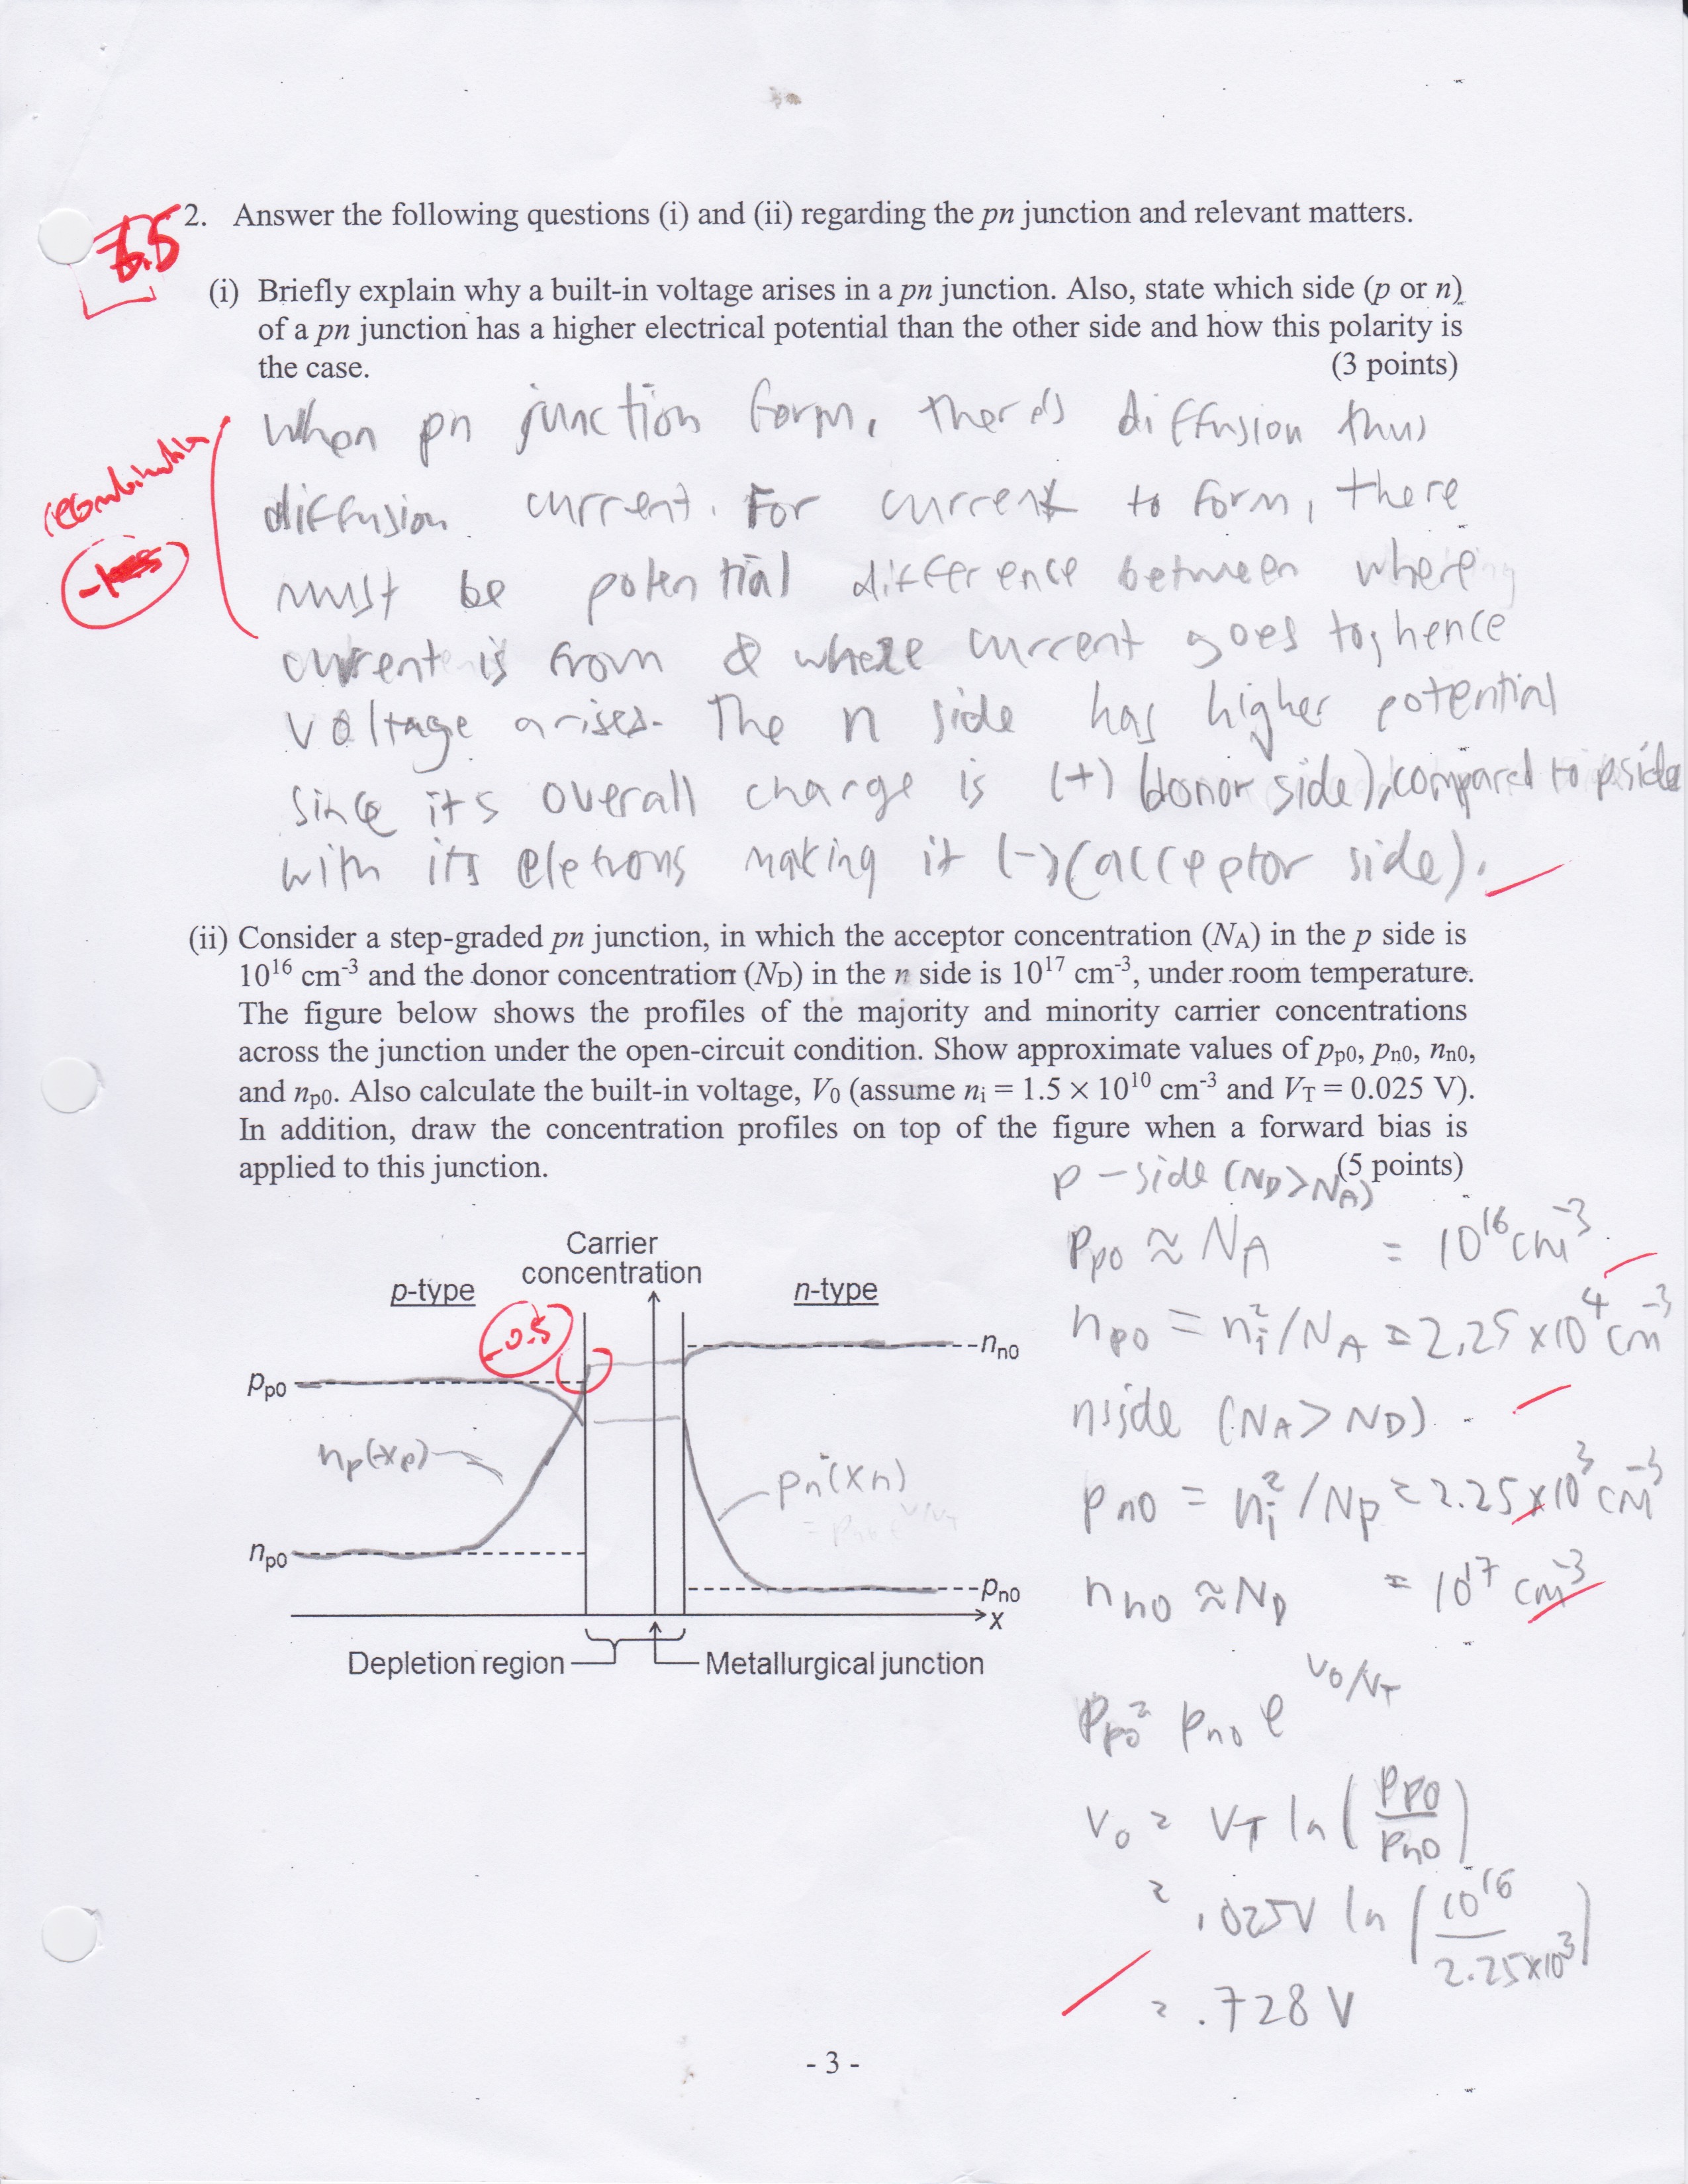 2. Answer the following questions (i) and (ii) regarding the pn junction and relevant matters.
(i) Briefly explain why a built-in voltage arises in a pn junction. Also, state which side (p or n)
of a pn junction has a higher electrical potential than the other side and how this polarity is
the case. (3 points)
When pn junction form, there's diffusion thus
diffusion current. For current to form, there
must be potential difference between where
current is from & where current goes to, hence
voltage arises. The n side has higher potential
since its overall charge is (+) (donor side), compared to p side
with its eletrons making it (-) (acceptor side).
recombination
(ii) Consider a step-graded pn junction, in which the acceptor concentration (NA) in the p side is
10¹⁶ cm⁻³ and the donor concentration (ND) in the n side is 10¹⁷ cm⁻³, under room temperature.
The figure below shows the profiles of the majority and minority carrier concentrations
across the junction under the open-circuit condition. Show approximate values of pp0, pn0, nn0,
and np0. Also calculate the built-in voltage, V0 (assume ni = 1.5 × 10¹⁰ cm⁻³ and VT = 0.025 V).
In addition, draw the concentration profiles on top of the figure when a forward bias is
applied to this junction. (5 points)
p-side (ND>NA)
Ppo ≈ NA = 10¹⁶ cm⁻³
npo = ni²/NA = 2.25 x10⁴ cm⁻³
nside (NA > ND)
pno = ni²/ND = 2.25x10³ cm⁻³
nno ≈ ND = 10¹⁷ cm⁻³
Ppo = pno e^(Vo/VT)
Vo = VT ln(ppo/pno)
= .025V ln(10¹⁶/2.25x10³)
= .728 V
Carrier
concentration
p-type
n-type
-0.5
nn0
Pp0
np(-xp)
pn(xn)
np0
Pn0
x
Depletion region
Metallurgical junction
- 3 -